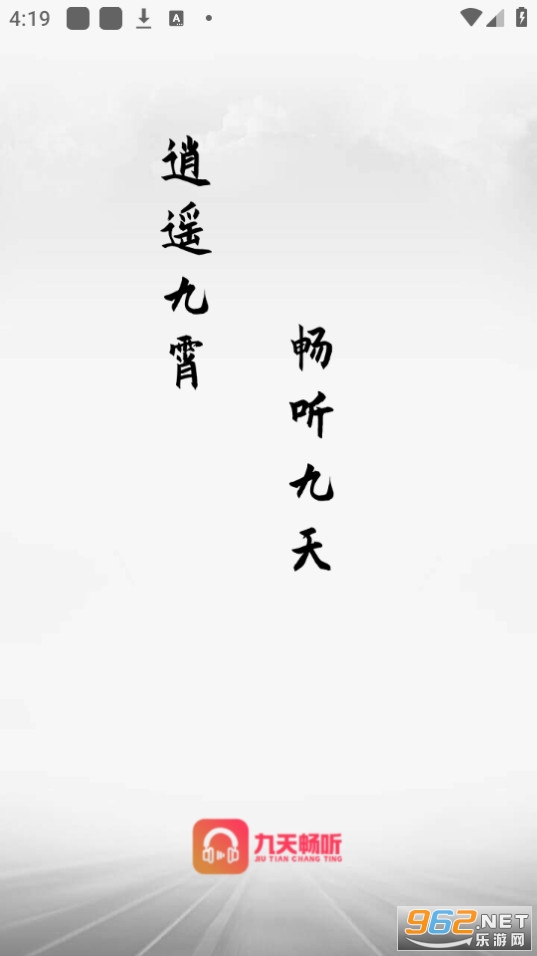 4:19
A
逍遥九霄
畅听九天
九天畅听
JIU TIAN CHANG TING
962.NET
乐游网